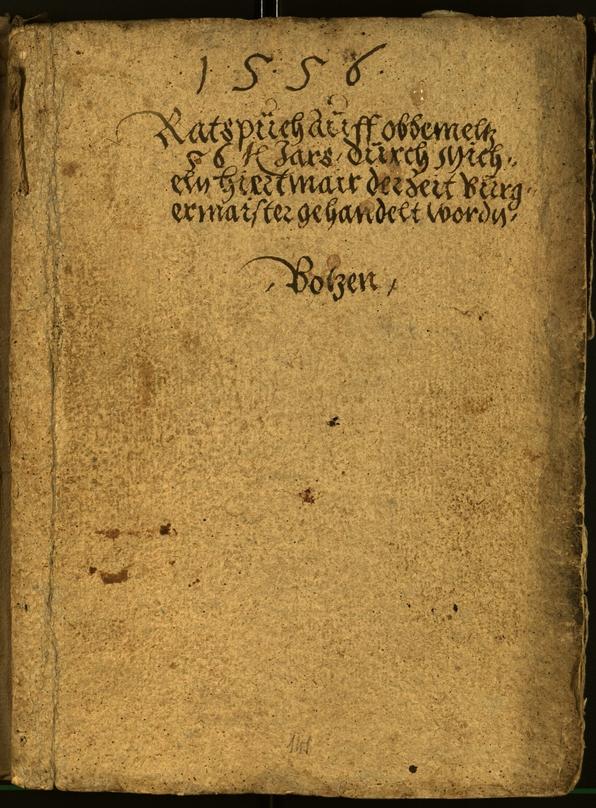 1556.
Ratspuech auff obbemeltz
56 tz Jars durch Mich-
eln Hiertmair derzeit Burg-
ermaister gehandelt wordn.
Botzen
141